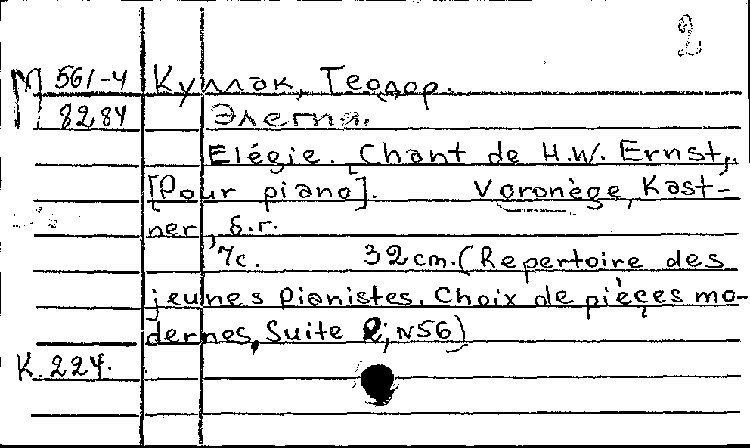 2
М 561-4 Куллак, Теодор.
8284 Элегия.
Elégie. Chant de H.W. Ernst,.
[Pour piano]. Voronège, Kast-
ner, б.г.
7с. 32 cm. (Repertoire des
jeunes pianistes. Choix de pièces mo-
dernes, Suite 2; N56)
К. 224.